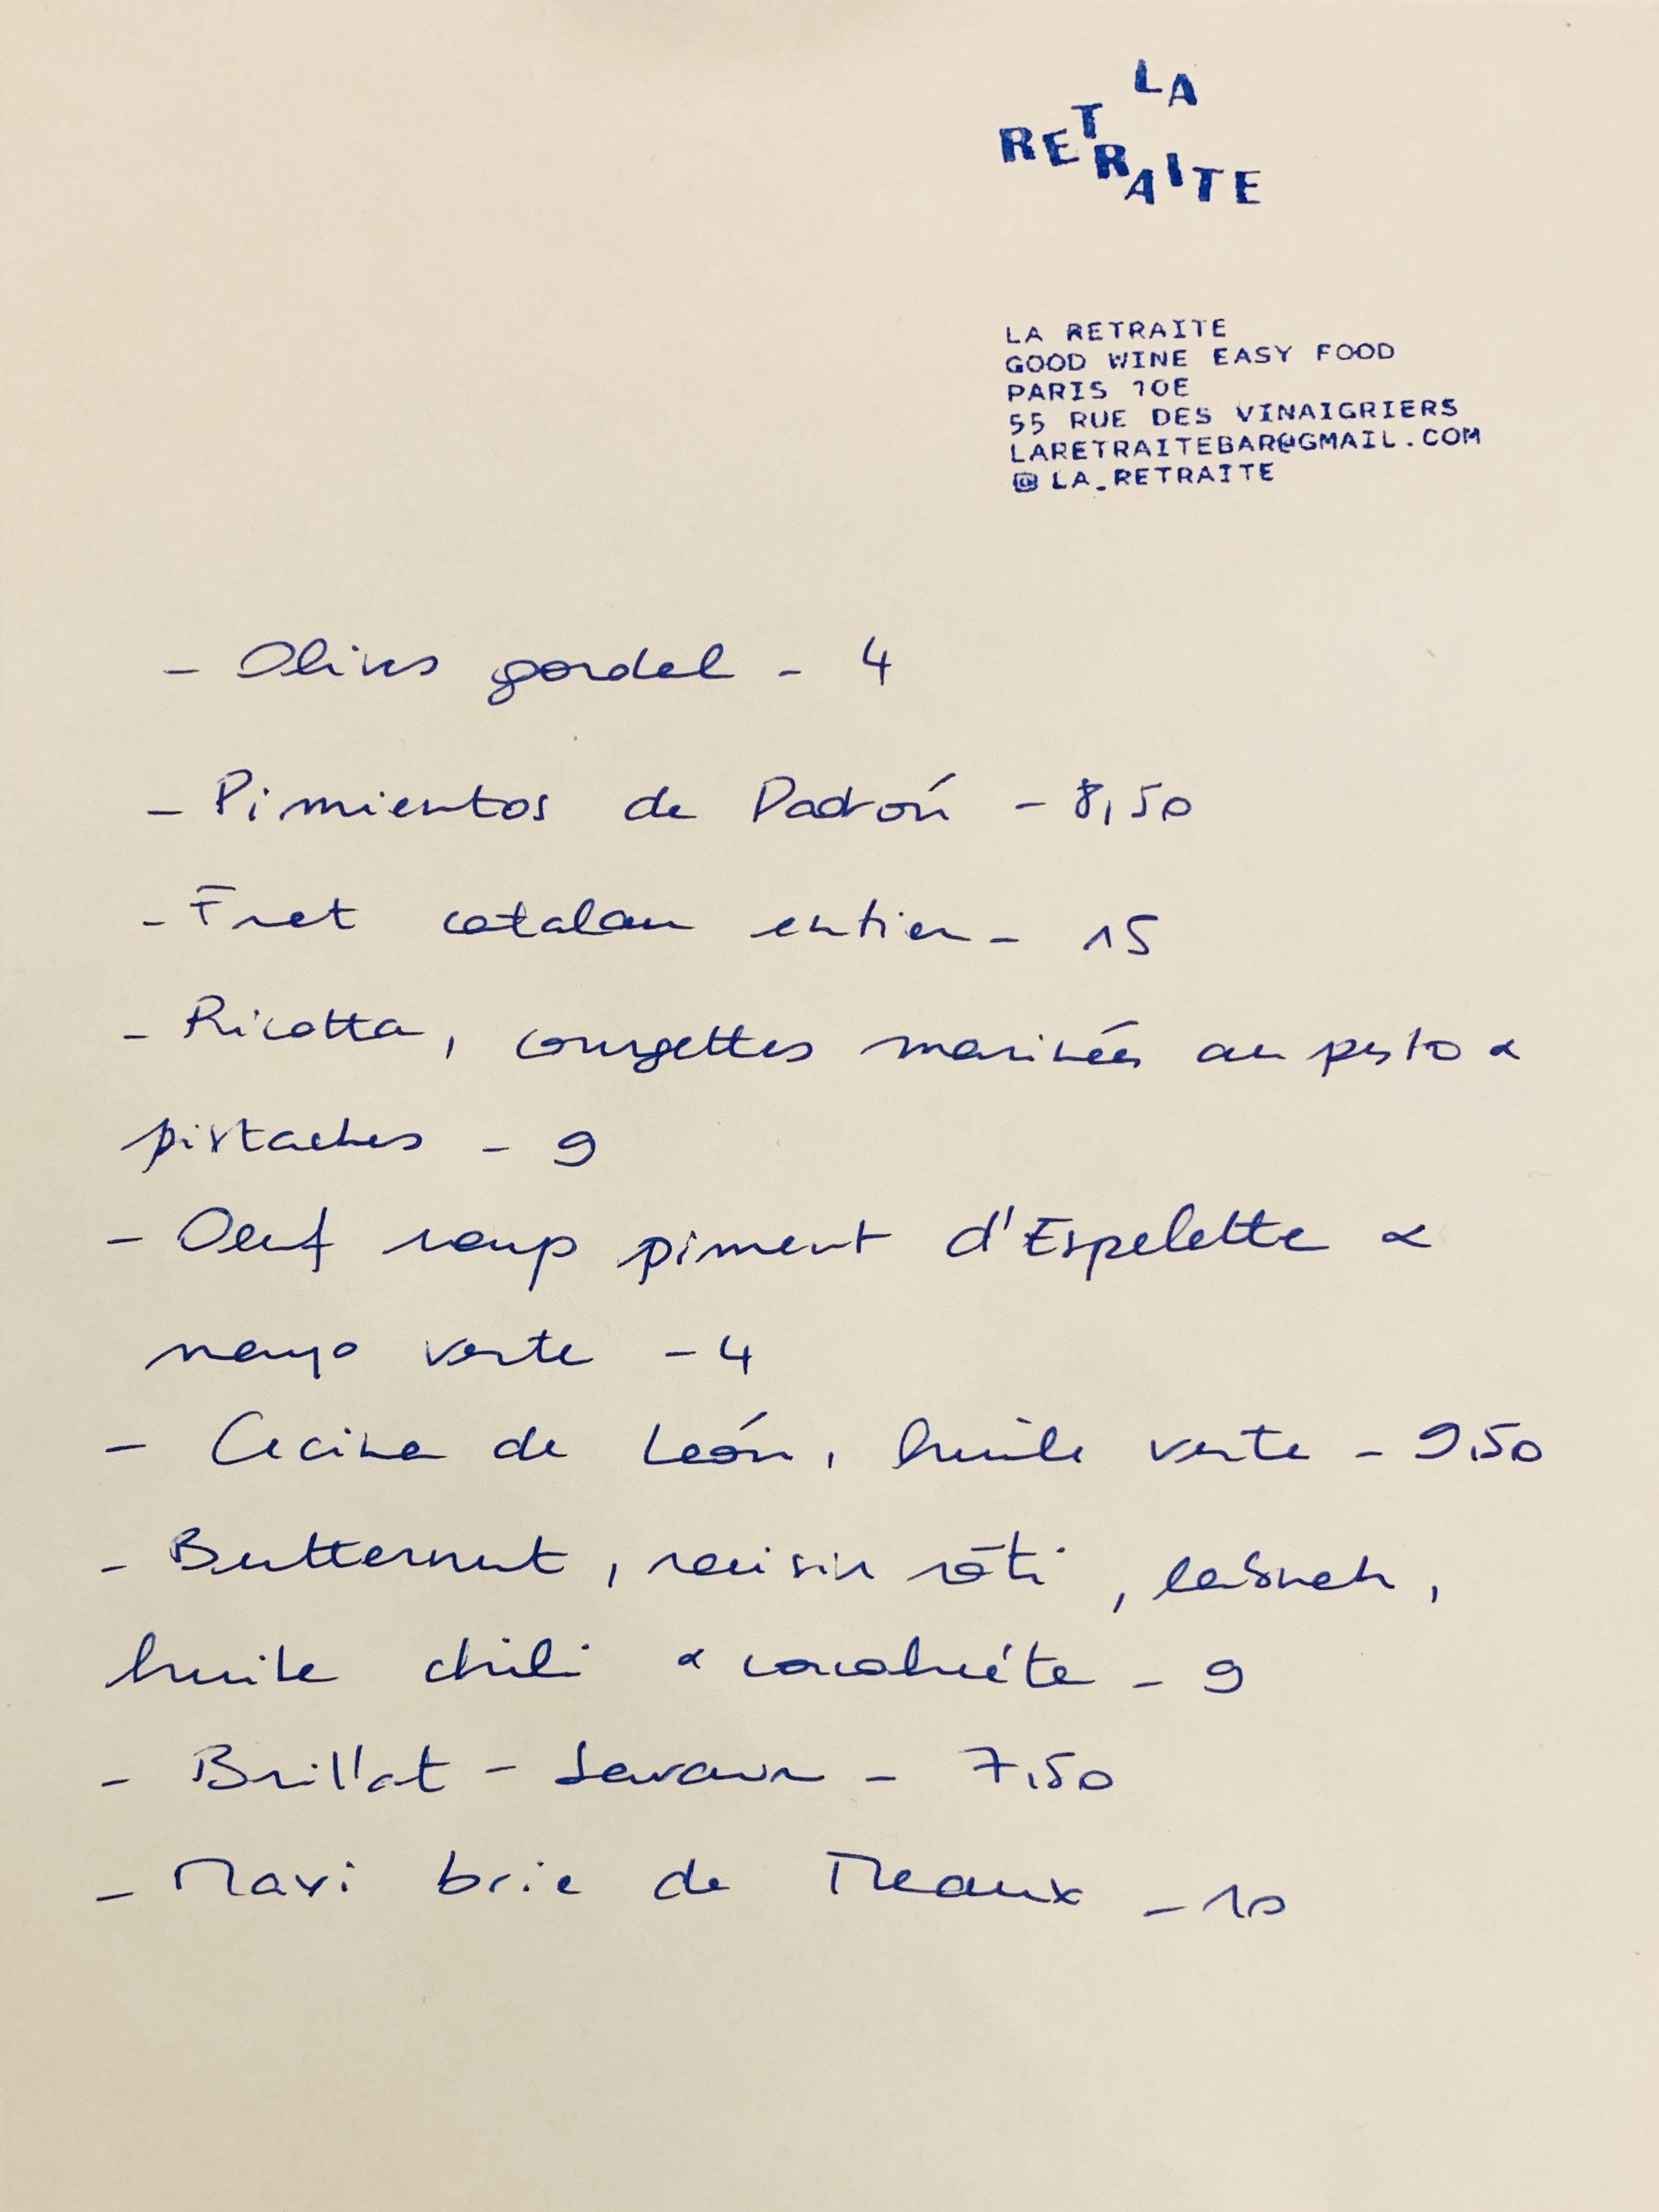 LA
RETRAITE
LA RETRAITE
GOOD WINE EASY FOOD
PARIS 10E
55 RUE DES VINAIGRIERS
LARETRAITEBAR@GMAIL.COM
LA_RETRAITE
- Olives gordal - 4
- Pimientos de Padrón - 8,50
- Fuet catalan entier - 15
- Ricotta, courgettes marinées au pesto &
pistaches - 9
- Oeuf coup piment d'Espelette &
mayo verte - 4
- Cecina de León, huile verte - 9,50
- Butternut, raisin rôti, labneh,
huile chili & cacahuète - 9
- Brillat-Savarin - 7,50
- Maxi brie de Meaux - 10